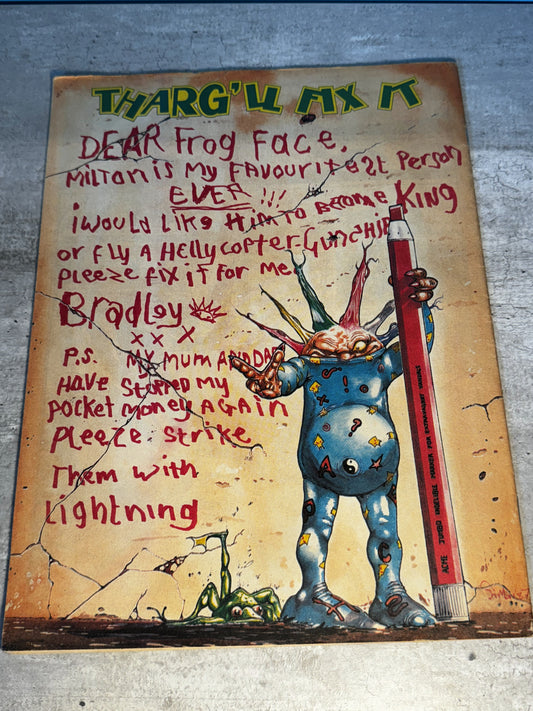 THARG'LL FIX IT
DEAR Frog Face,
Milton is My FAVOURITEST Person
EVER !!!
i Would Like Him To Become KING
or fly A Hellycofter Gunship
pleeze fix it for Me
Bradley
x x x
P.S. My MUM AND DAD
HAVE Stopped My
Pocket Money AGAIN
Pleeze Strike
Them with
Lightning
ACME JUMBO INDELIBLE MARKER FOR EXTRAVAGANT VANDALS